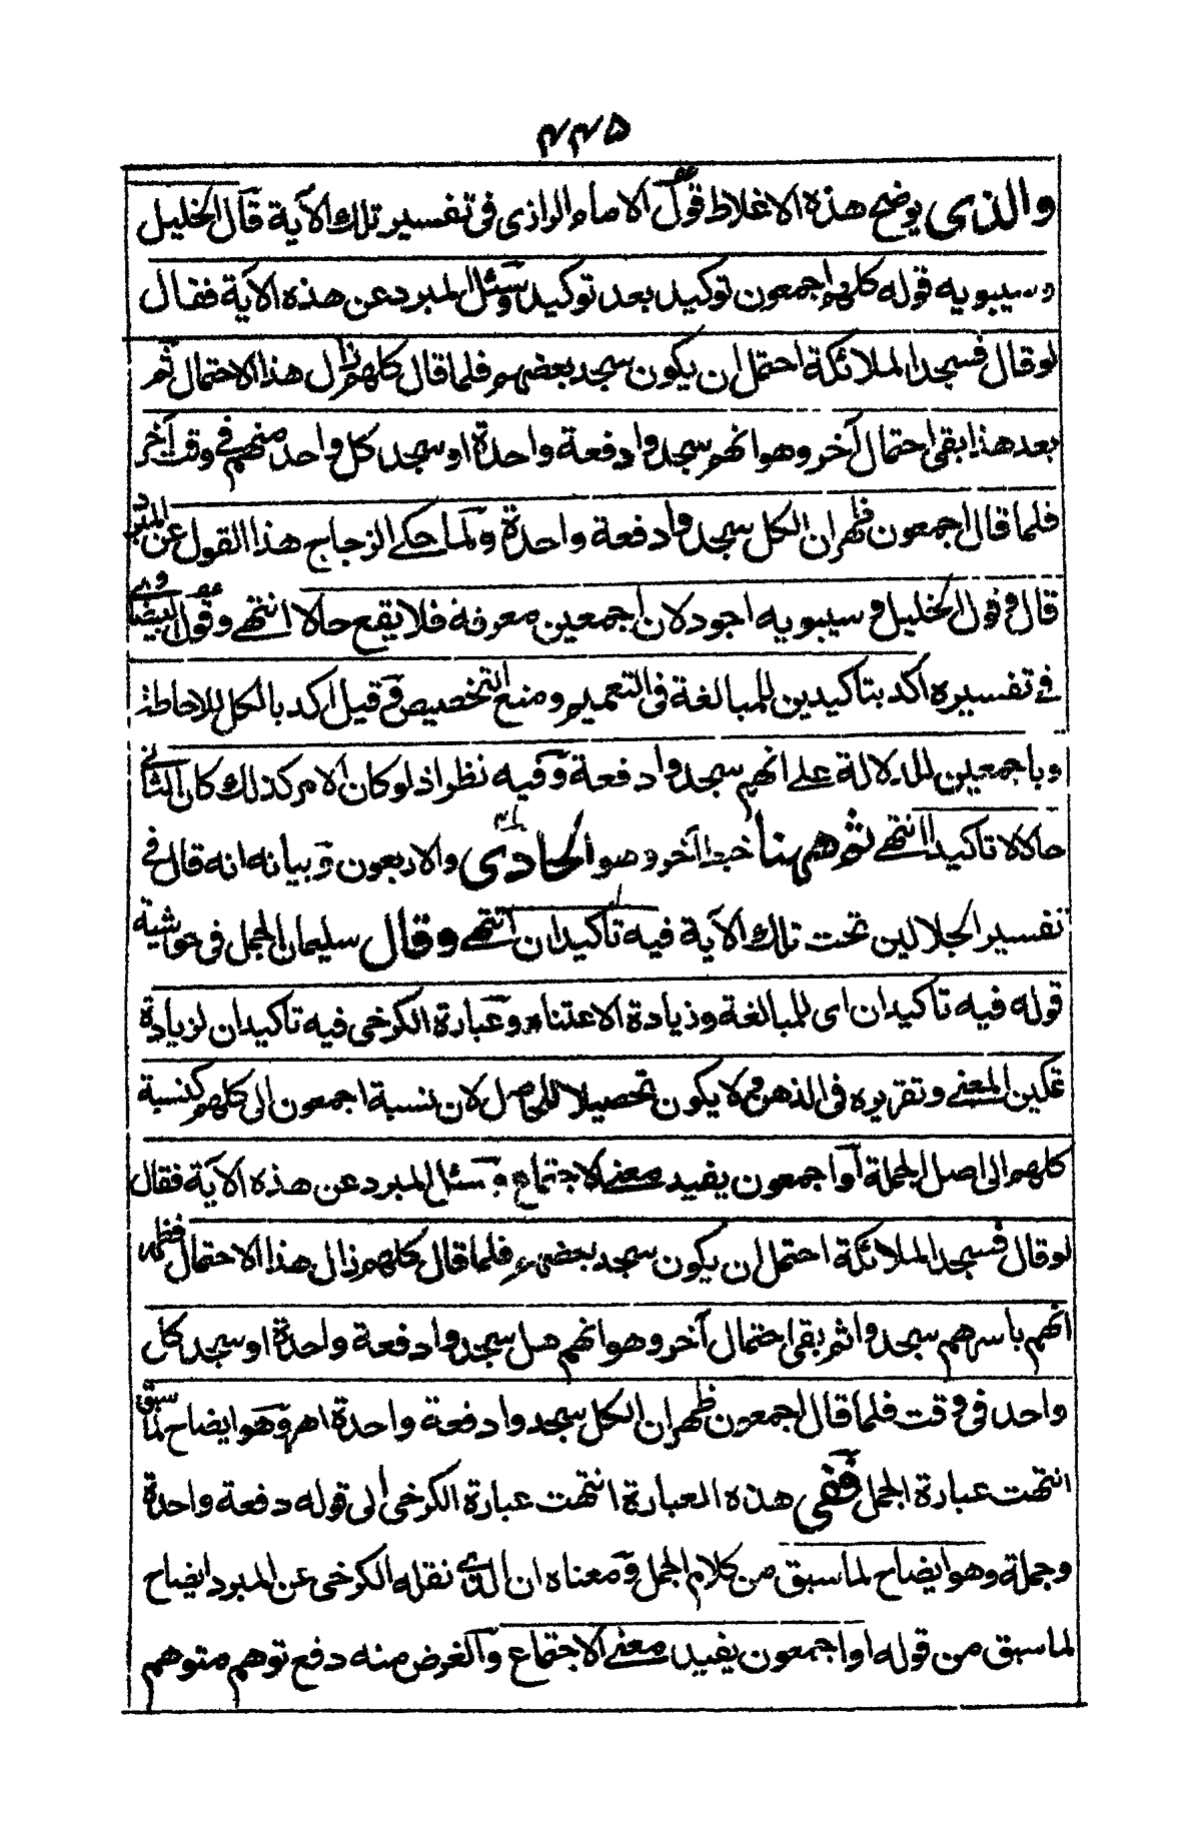 ٤٤٥
والذى يوضح هذه الاغلاط قول الامام الرازى فى تفسير تلك الآية قال الخليل
وسيبويه قوله كلهم اجمعون توكيد بعد توكيد وسئل المبرد عن هذه الآية فقال
لو قال فسجد الملائكة احتمل ان يكون سجد بعضهم فلما قال كلهم زال هذا الاحتمال ثم
بعد هذا بقى احتمال آخر وهو انهم سجدوا دفعة واحدة او سجد كل واحد منهم فى وقت آخر
فلما قال اجمعون ظهر ان الكل سجدوا دفعة واحدة ولما حكى الزجاج هذا القول عن المبرد
قال وقول الخليل وسيبويه اجود لان اجمعين معرفة فلا يقع حالا انتهى وقول البيضاوى
فى تفسيره اكد بتاكيدين للمبالغة فى التعميم ومنع التخصيص وقيل اكد بالكل للاحاطة
وباجمعين للدلالة على انهم سجدوا دفعة وفيه نظر اذ لو كان الامر كذلك كان الثانى
حالا لا تاكيدا انتهى ثم ههنا خبط آخر وهو الحادى والاربعون وبيانه انه قال فى
تفسير الجلالين تحت تلك الآية فيه تأكيدان انتهى وقال سليمان الجمل فى حواشيه
قوله فيه تاكيدان اى للمبالغة وزيادة الاعتناء وعبارة الكرخى فيه تاكيدان لزيادة
تمكين المعنى وتقريره فى الذهن ولا يكون تحصيلا للحاصل لان نسبة اجمعون الى كلهم كنسبة
كلهم الى اصل الجملة أو اجمعون يفيد معنى الاجتماع وسئل المبرد عن هذه الآية فقال
لو قال فسجد الملائكة احتمل ان يكون سجد بعضهم فلما قال كلهم زال هذا الاحتمال فظهر
انهم باسرهم سجدوا ثم بقى احتمال آخر وهو انهم هل سجدوا دفعة واحدة او سجد كل
واحد فى وقت فلما قال اجمعون ظهر ان الكل سجدوا دفعة واحدة اهـ وهو ايضاح لما سبق
انتهت عبارة الجمل ففى هذه العبارة انتهت عبارة الكرخى الى قوله دفعة واحدة
وجملة وهو ايضاح لما سبق من كلام الجمل ومعناه ان الذى نقله الكرخى عن المبرد ايضاح
لما سبق من قوله او اجمعون يفيد معنى الاجتماع والغرض منه دفع توهم متوهم